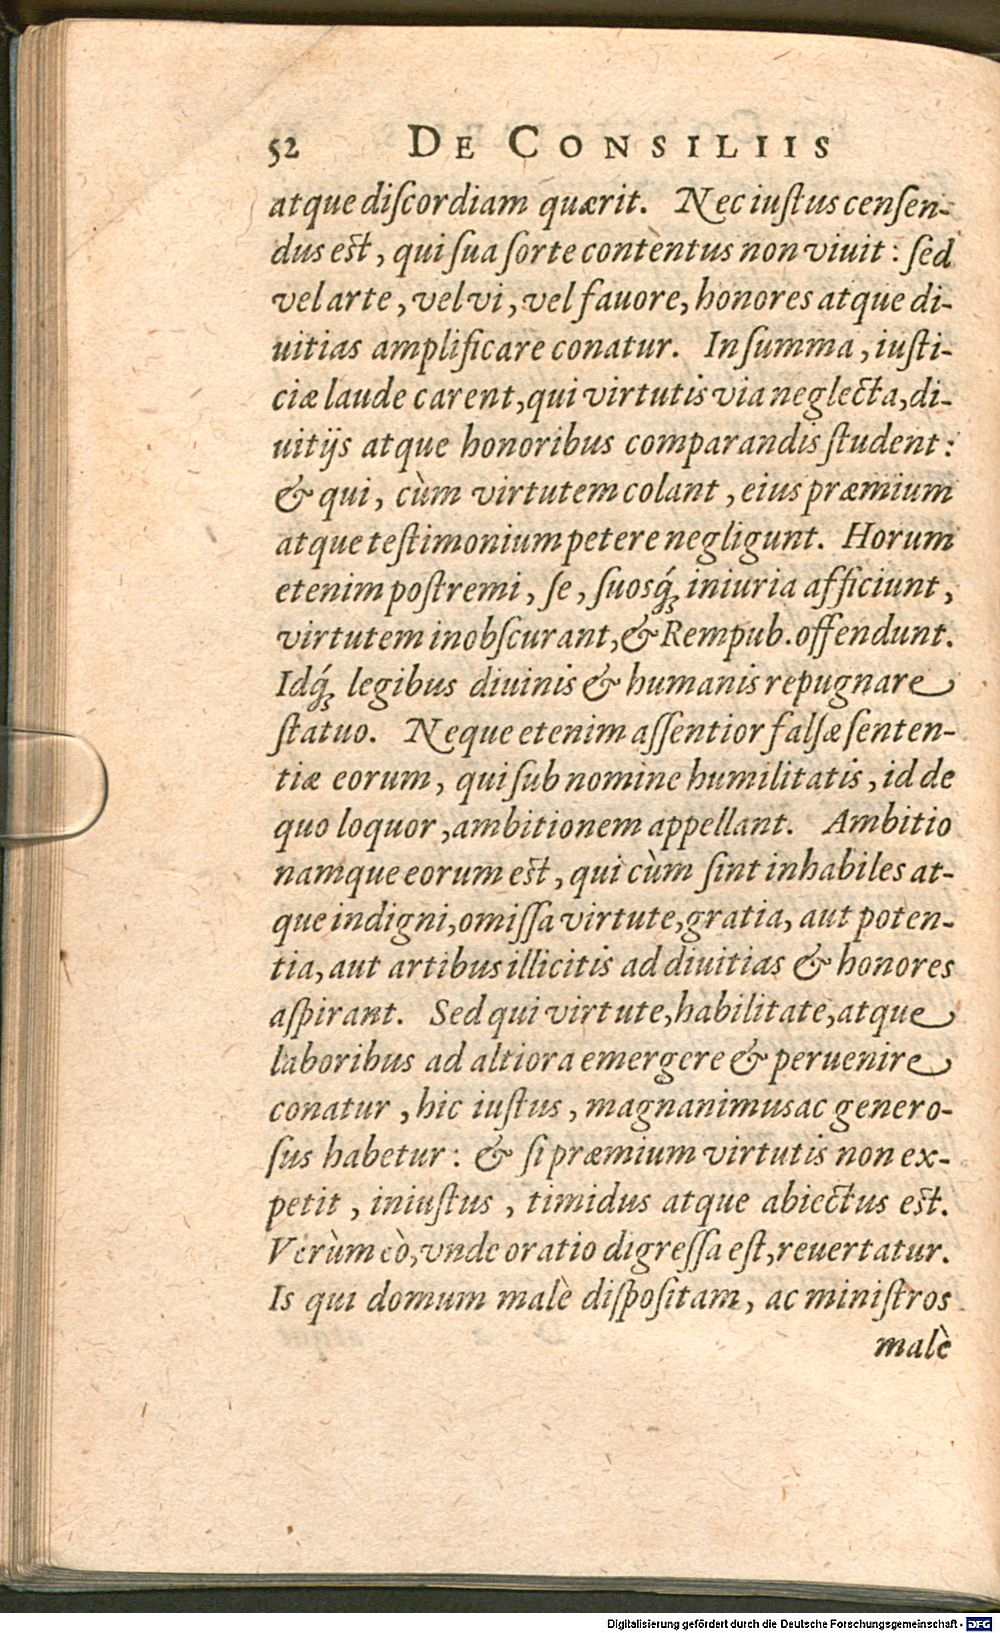 52 DE CONSILIIS
atque diſcordiam quærit. Nec iuſtus cenſen-
dus eſt, qui ſua ſorte contentus non viuit: ſed
vel arte, vel vi, vel fauore, honores atque di-
uitias amplificare conatur. In ſumma, iuſti-
ciæ laude carent, qui virtutis via neglecta, di-
uitijs atque honoribus comparandis ſtudent:
& qui, cùm virtutem colant, eius præmium
atque teſtimonium petere negligunt. Horum
etenim poſtremi, ſe, ſuosq́; iniuria afficiunt,
virtutem inobſcurant, & Rempub. offendunt.
Idq́; legibus diuinis & humanis repugnare
ſtatuo. Neque etenim aſſentior falſæ ſenten-
tiæ eorum, qui ſub nomine humilitatis, id de
quo loquor, ambitionem appellant. Ambitio
namque eorum eſt, qui cùm ſint inhabiles at-
que indigni, omiſſa virtute, gratia, aut poten-
tia, aut artibus illicitis ad diuitias & honores
aſpirant. Sed qui virtute, habilitate, atque
laboribus ad altiora emergere & peruenire
conatur, hic iuſtus, magnanimus ac genero-
ſus habetur: & ſi præmium virtutis non ex-
petit, iniuſtus, timidus atque abiectus eſt.
Verùm eò, vnde oratio digreſſa eſt, reuertatur.
Is qui domum malè diſpoſitam, ac miniſtros
malè
Digitalisierung gefördert durch die Deutsche Forschungsgemeinschaft - DFG